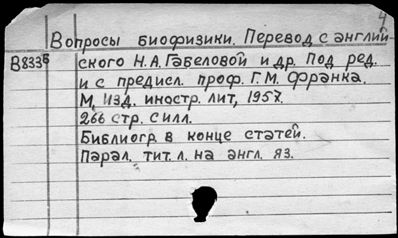 4
Вопросы биофизики. Перевод с англий-
В8336 ского Н.А. Габеловой и др. Под ред.
и с предисл. проф. Г.М. Франка.
М, Изд. иностр. лит, 1957.
266 стр. с илл.
Библиогр. в конце статей.
Парал. тит. л. на англ. яз.